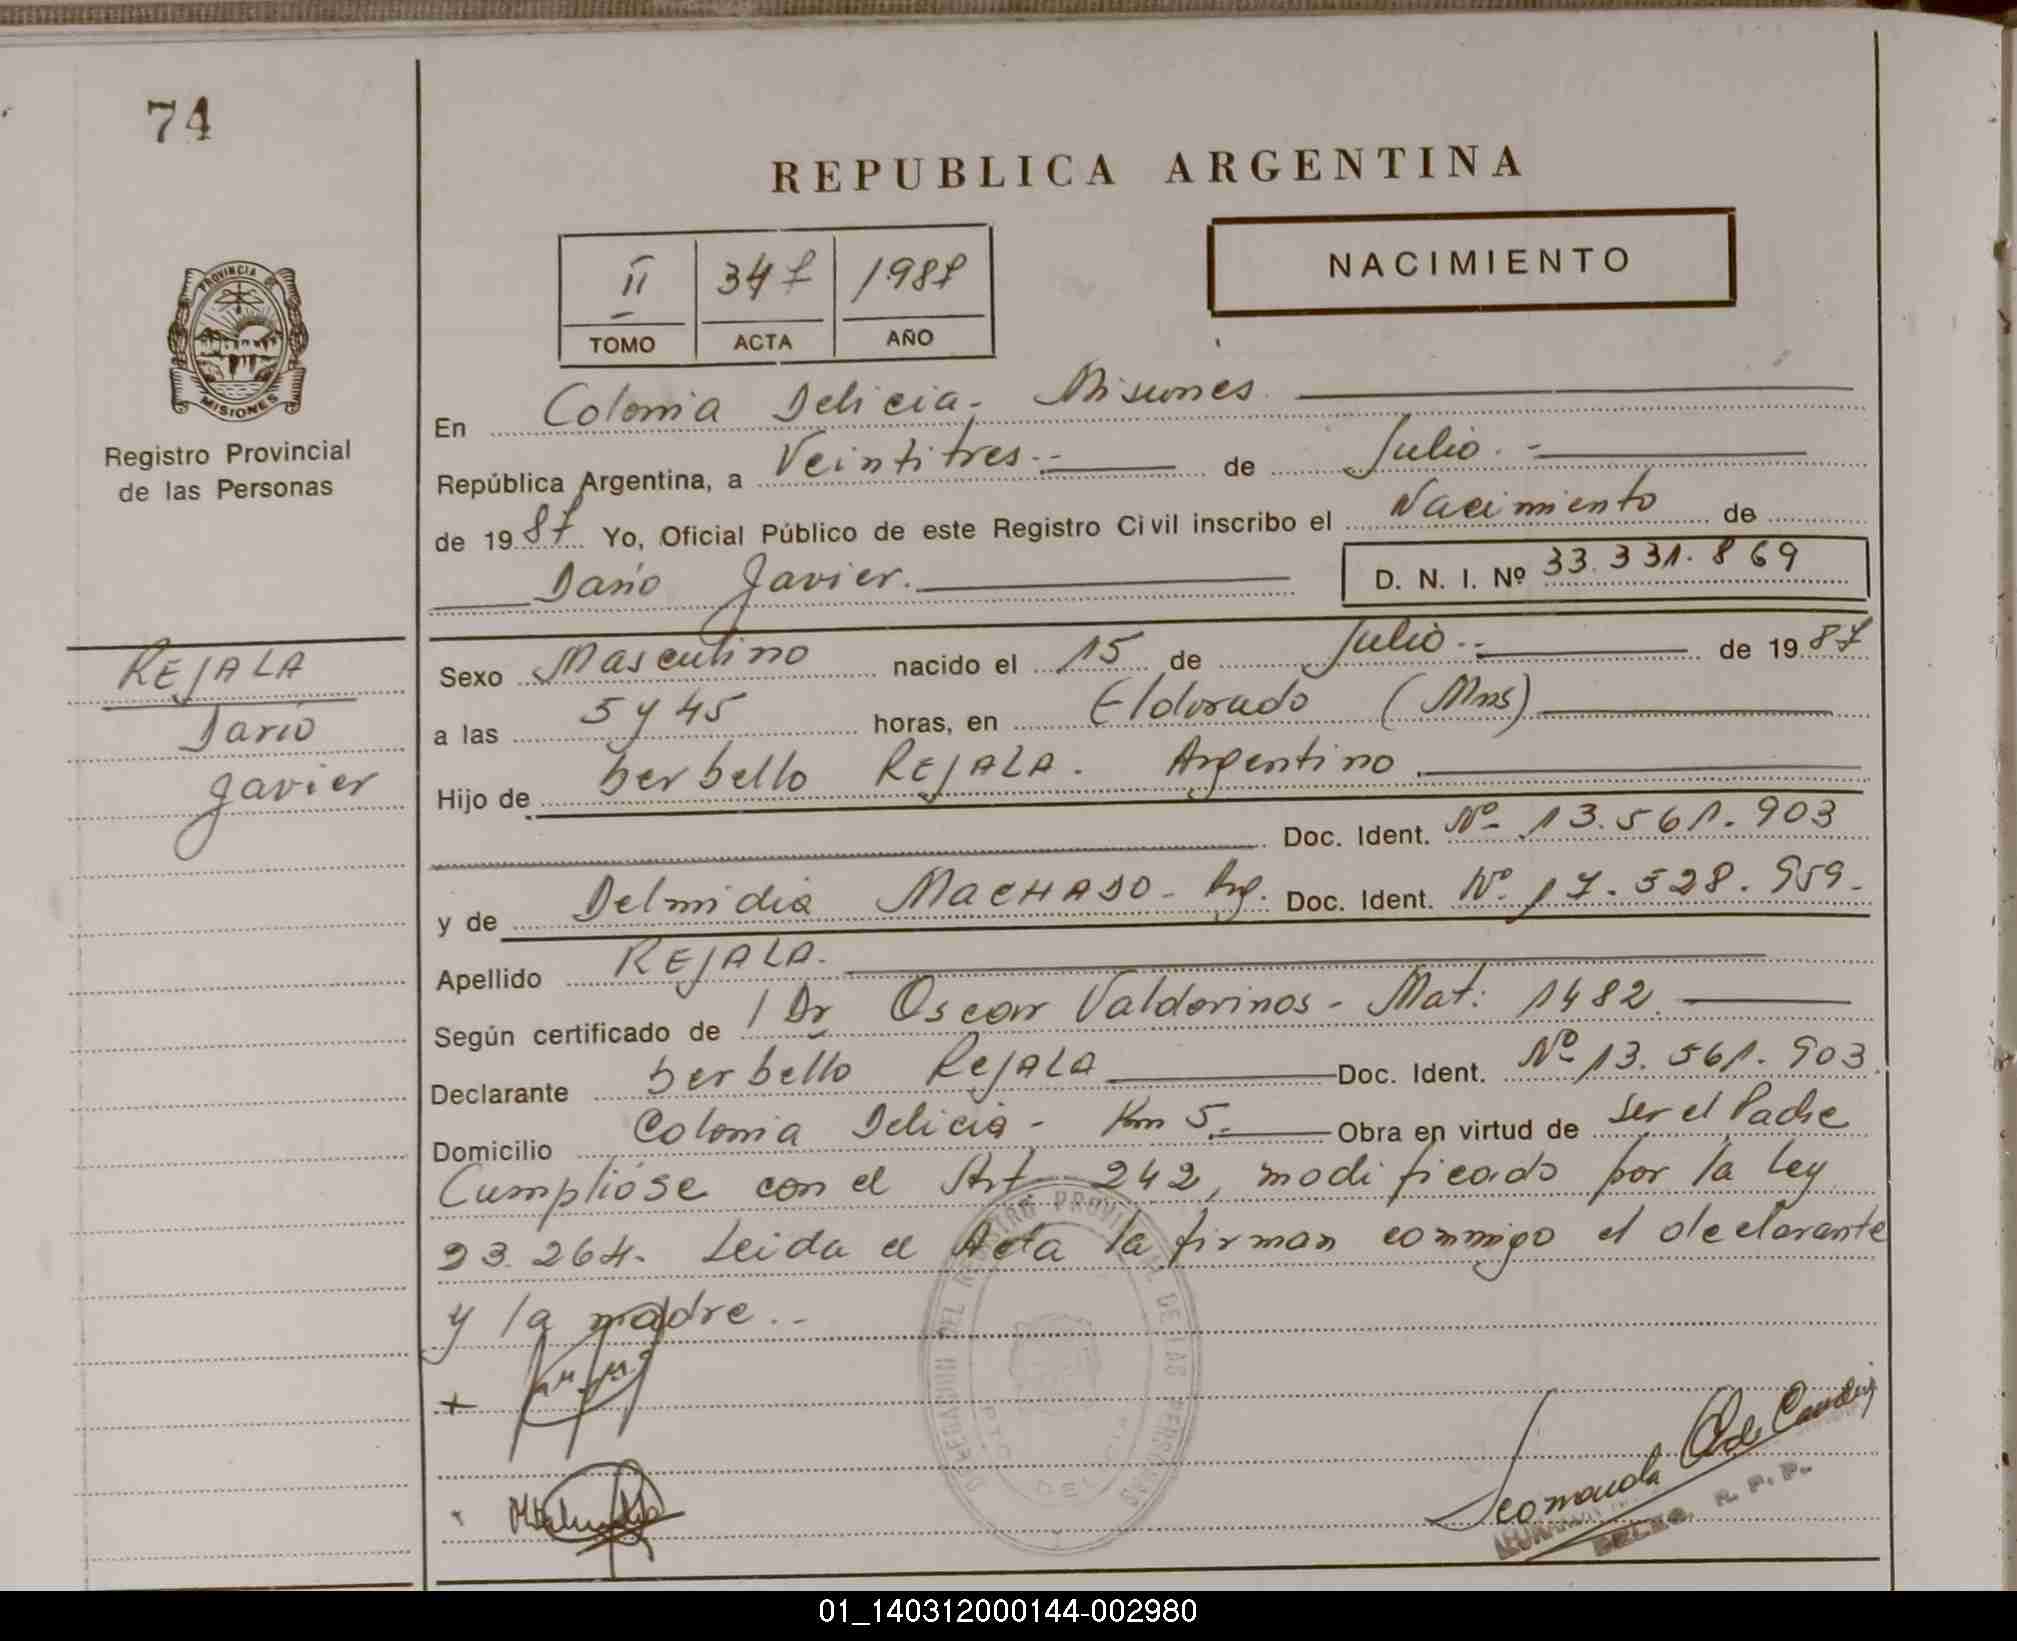 74
REPUBLICA ARGENTINA
II 347 1987
TOMO ACTA AÑO
NACIMIENTO
PROVINCIA DE
MISIONES
Registro Provincial
de las Personas
En Colonia Delicia - Misiones.
República Argentina, a Veintitres.- de Julio.-
de 1987 Yo, Oficial Público de este Registro Civil inscribo el Nacimiento de
Darío Javier.
D. N. I. Nº 33.331.869
REJALA
Darío
Javier
Sexo Masculino nacido el 15 de Julio.- de 1987
a las 5 y 45 horas, en Eldorado (Mns)
Hijo de berbello REJALA. Argentino
Doc. Ident. Nº 13.561.903
y de Delmidia MACHADO - Arg. Doc. Ident. Nº 17.528.959.-
Apellido REJALA.
Según certificado de Dr Oscar Valdovinos - Mat: 1482.
Declarante berbello REJALA Doc. Ident. Nº 13.561.903.
Domicilio Colonia Delicia - Km 5.- Obra en virtud de ser el Padre
Cumplióse con el Art. 242, modificado por la ley
23.264. Leida el Acta la firman conmigo el declarante
y la madre.-
DELEGACION DEL REGISTRO PROVINCIAL DE LAS PERSONAS
DELICIA
R. P. P.
01_140312000144-002980